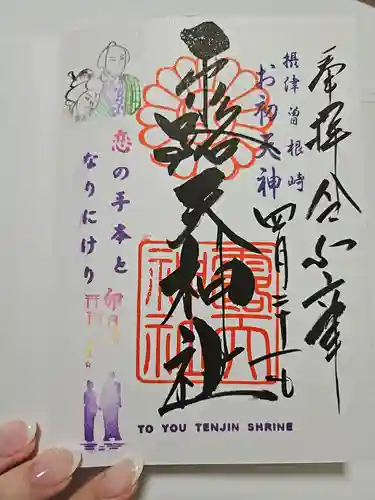 奉拝 令和六年
四月二十一日
摂津 曽根崎
お初天神
露天神社
露天
神社
恋の手本と
なりにけり
卯月
TO YOU TENJIN SHRINE